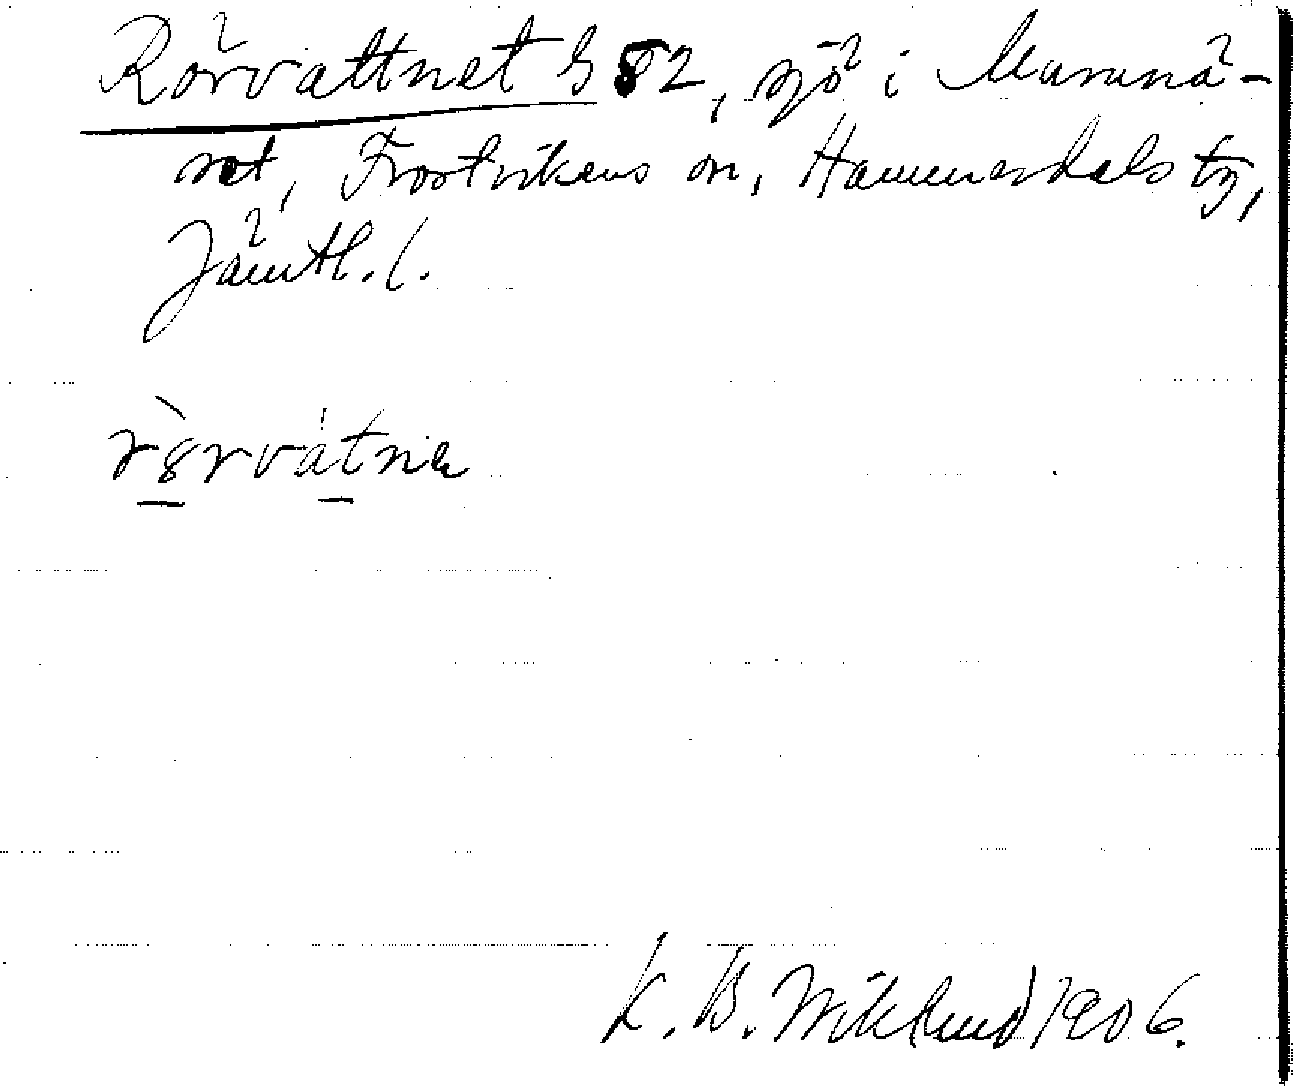 Rörvattnet § 82, sjö i Murunä-
set, Frostvikens sn, Hammerdals tg,
Jämtl. l.
rörvátnə
K. B. Wiklund 1906.